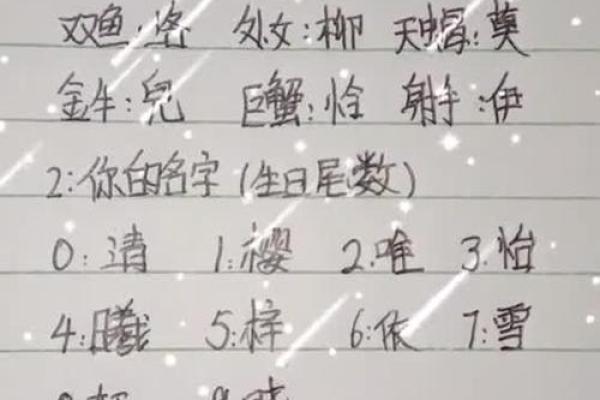 双鱼:洛 处女:柳 天蝎:莫
金牛:兒 巨蟹:恰 射手:伊
2:你的名字(生日尾数)
0:清 1:樱 2.唯 3.怡
4:曦 5:梓 6:依 7:雪